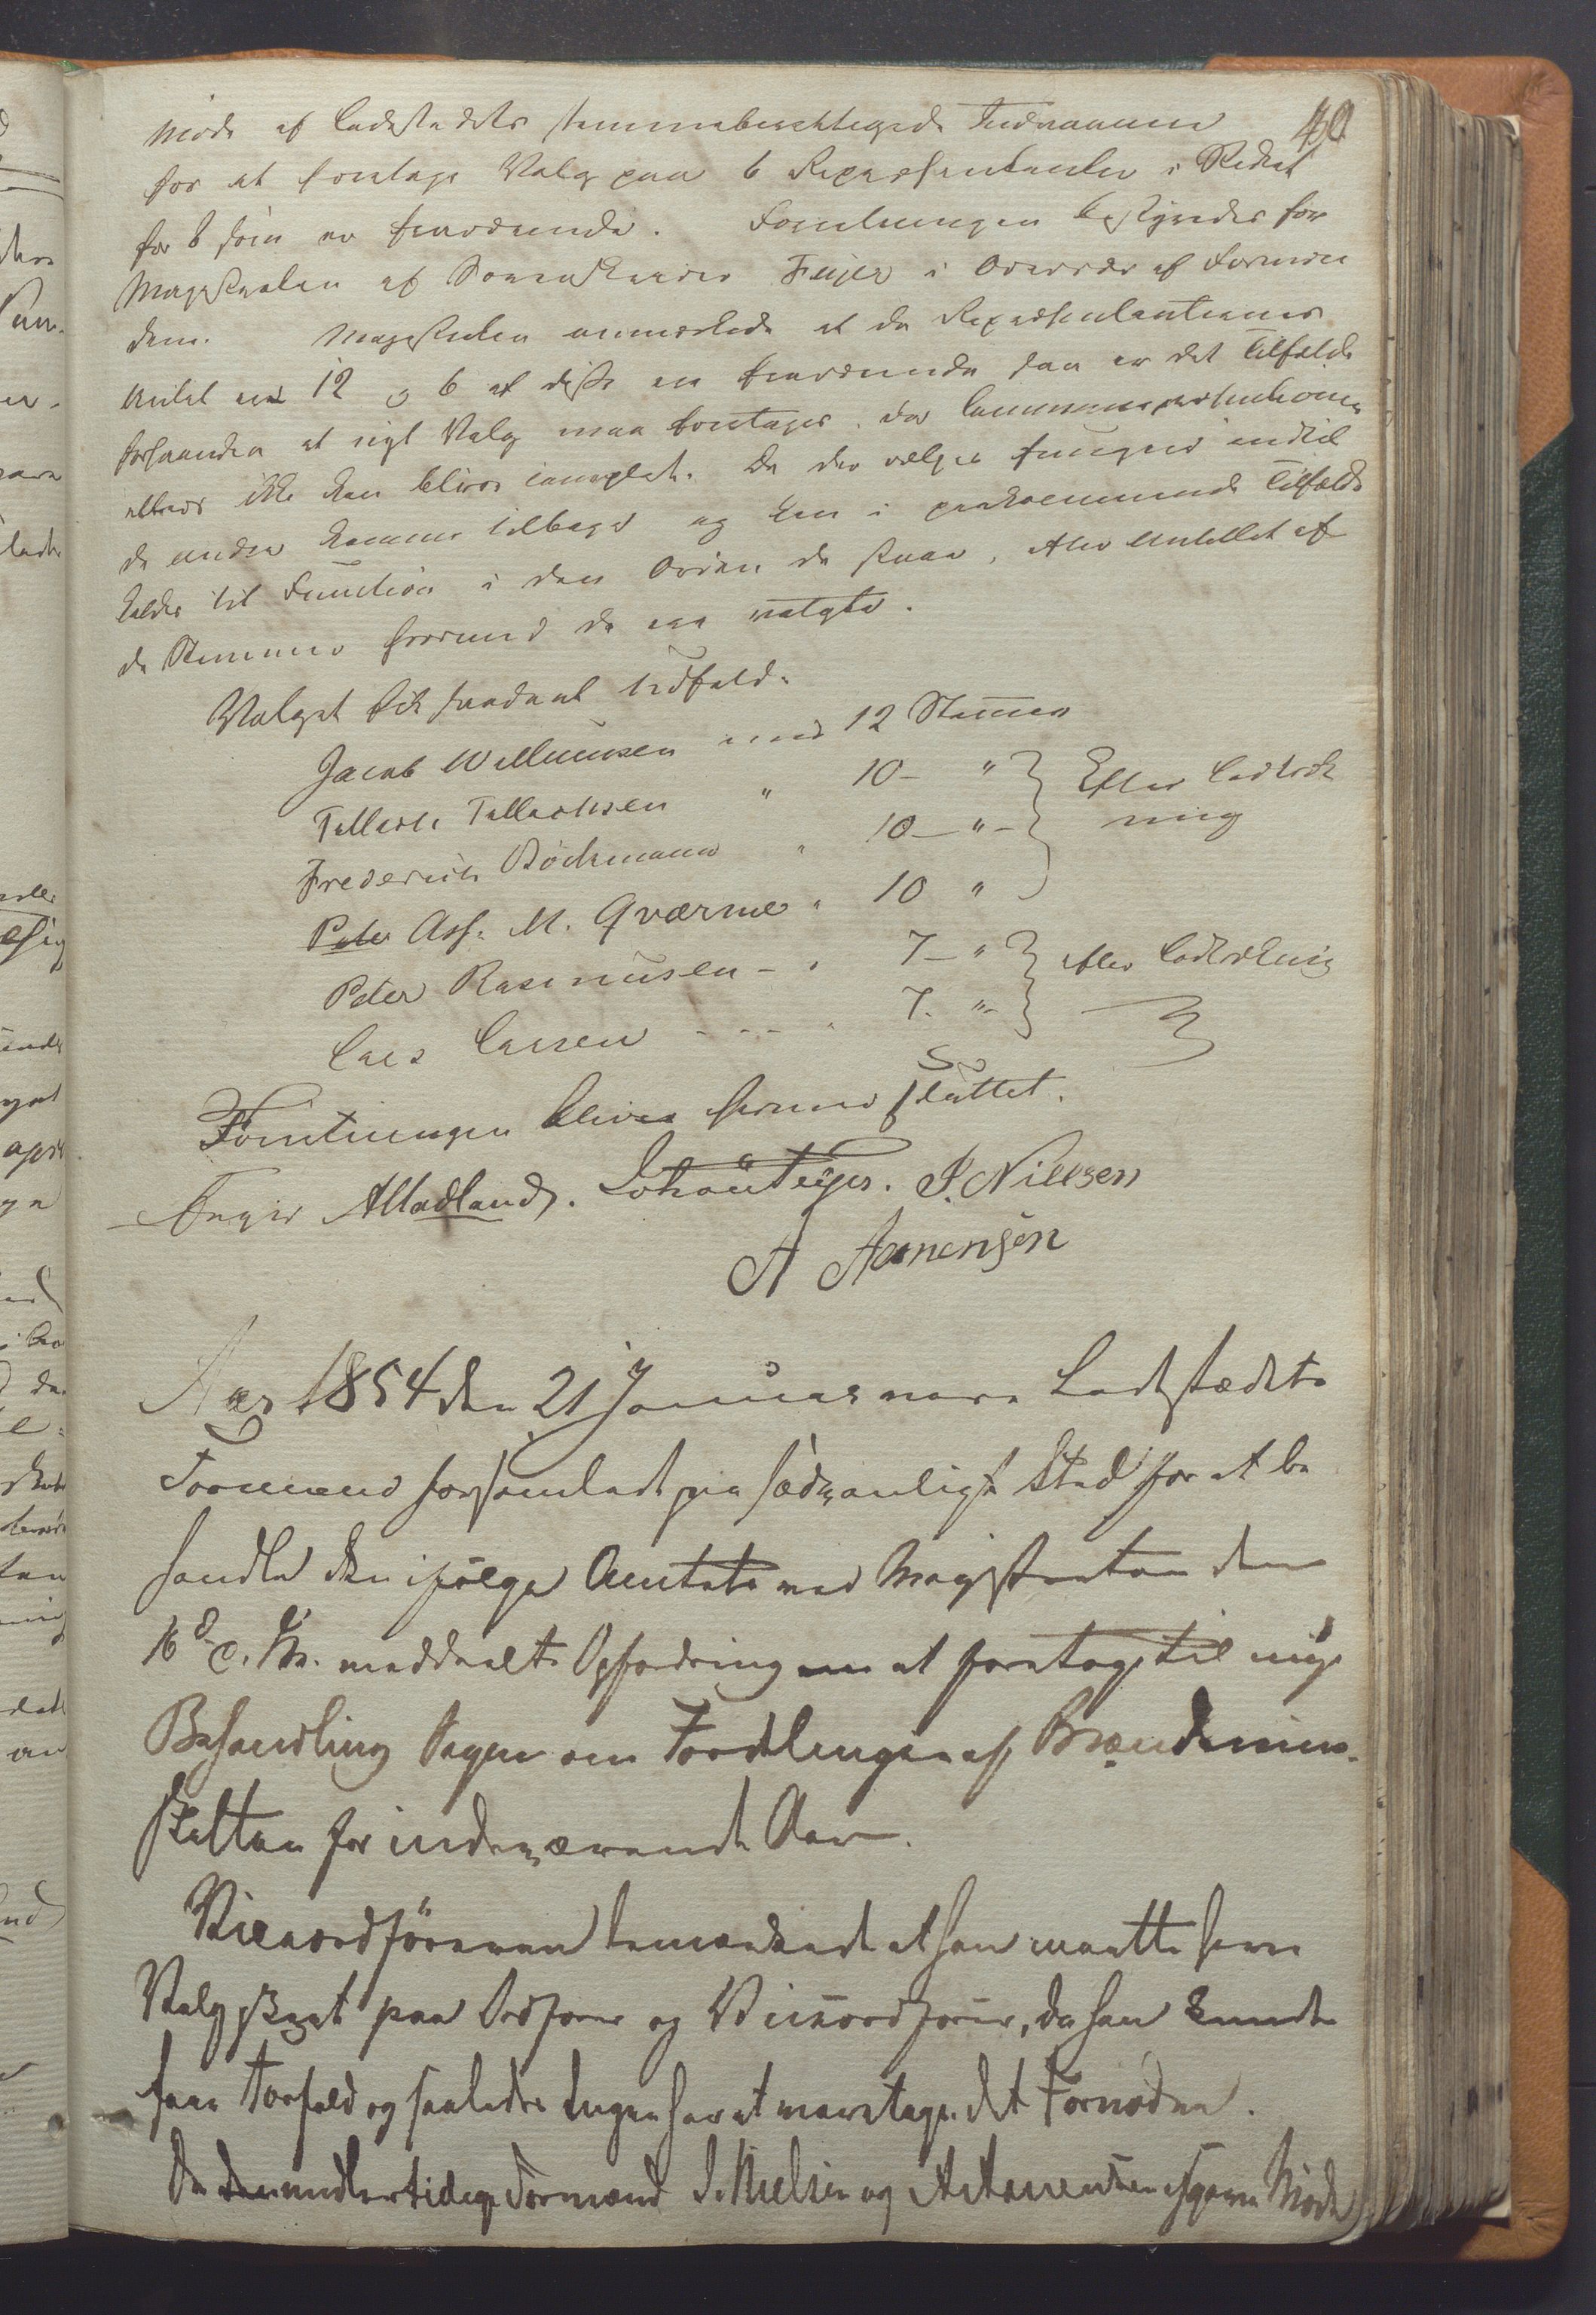 40
Møde af Ladestedets stemmeberettigede Indvaanere
for at foretage Valg paa 6 Repræsentanter i Stedet
for 6 som er fraværende. Forretningen bestyredes for
Magistraten af Feyer i Overvær af Formæn
dene. Magistraten anmærkede at da Repræsentanternes
Antal er 12 og 6 af disse ere fraværende saa er det Tilfælde
forhaanden at nyt Valg maa foretages, da
ellers ikke kan blive complet. De der vælges fungere indtil
de andre komme tilbage og kan i paakommende Tilfælde
kaldes til Function i den Orden de staae, efter Antallet af
de Stemmer hvormed de ere valgte.
Valget fik saadant Udfald.
Jacob Willumsen med 12 Stemmer
Tallach Tallachsen " 10 - " } Efter Lodtræk
Frederich Böckmann " 10 - " - } ning
Peter Ass. M. Qværme " 10 "
Peter Rasmusen - " 7 - " } efter Lodtrækning
Lars Larsen - - - " 7. " }
Forretningen blev hermed sluttet.
Feyer AMadland. Johan Feyer. J. Nielsen
A Aanensen
Aar 1854 den 21 Januar vare Ladestædets
Formænd forsamlede paa sædvanligt Sted for at be
handle den ifølge Amtets ved Magistraten den
16d c. M. meddeelte Opfordring om at foretage til nye
Behandling Sagen om Fordelingen af Brændeviins
skatten for indeværende Aar.
Viceordføreren bemærkede at han maatte have
Valg skeet paa Ordfører og Viceordfører, da han kunde
faae Forfald og saaledes Ingen har at varetage det Fornødne.
De midlertidige Formænd J. Nielsen og A Aanensen gave Møde